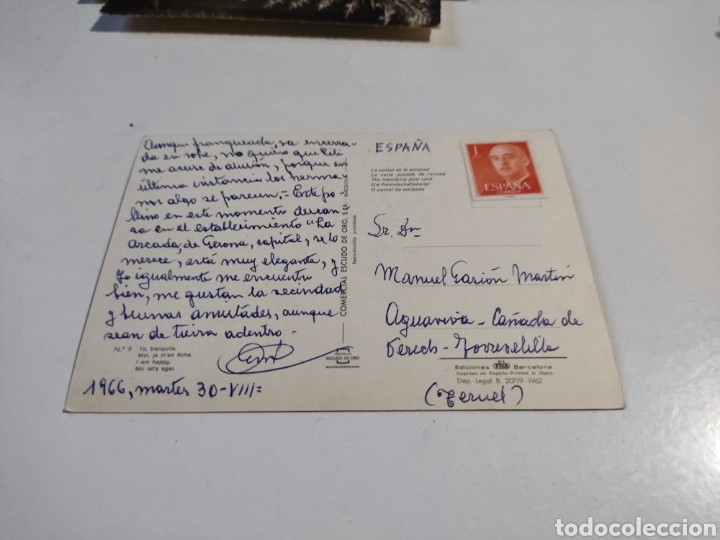 Aunque franqueada, va encerra-
da en sobre, no quiero que Pili
me acuse de alusión, porque en
última instancia los herma-
nos algo se parecen.- Este po-
llino en este momento descan-
sa en el establecimiento "La
Arcada, de Gerona, capital, se lo
merece, está muy elegante, y
Yo igualmente me encuentro
bien, me gustan la vecindad
y buenas amistades, aunque
sean de tierra adentro.-
N.º 9 Yo, tranquilo.
Moi, je m'en fiche.
I am happy.
Mir ist's egal.
1966, martes 30-VIII=
COMERCIAL ESCUDO DE ORO, S.A.
Reproducción prohibida
ESCUDO DE ORO
ESPAÑA
La postal de la amistad
La carte postale de l'amitié
The friendship post card
Die freundschaftskarte
O postal da amizade
1
ESPAÑA
Sr. Dn
Manuel Garión Martín
Aguaviva - Cañada de
Verech - Torrevelilla
(Teruel)
Ediciones Barcelona
Impreso en España-Printed in Spain
Dep. Legal B. 20719-1962
todocoleccion